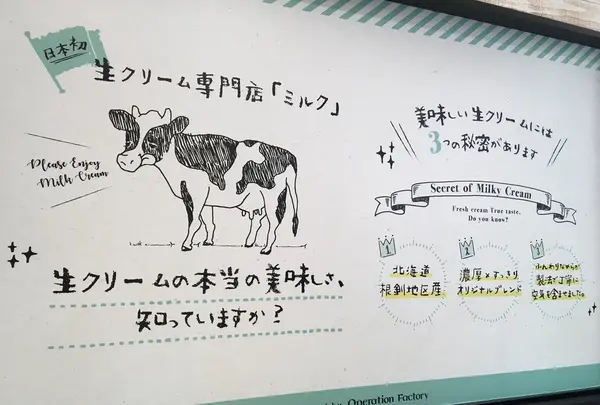 日本初
生クリーム専門店「ミルク」
Please Enjoy
Milk Cream
生クリームの本当の美味しさ、
知っていますか?
美味しい生クリームには
3つの秘密があります
Secret of Milky Cream
Fresh cream True taste.
Do you know?
1
北海道
根釧地区産
2
濃厚×すっきり
オリジナルブレンド
3
ふんわりなめらか
製法で丁寧に
空気を含ませました。
Operation Factory